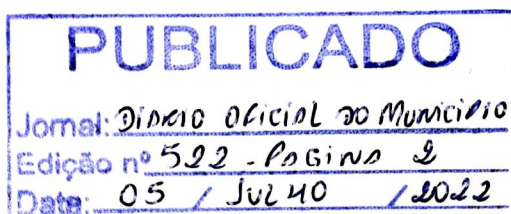 PUBLICADO
Jornal: DIARIO OFICIAL DO MUNICIPIO
Edição nº 522 - PAGINA 2
Data: 05 / JULHO / 2022